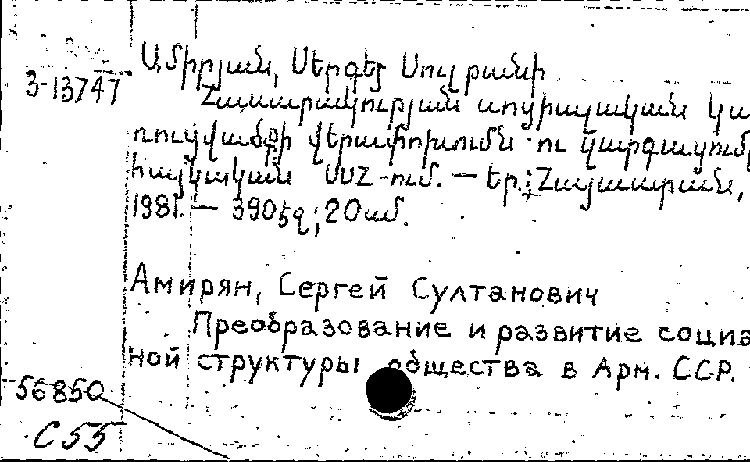 Ամիրյան, Սերգեյ Սուլթանի
3-13747
Հասարակության սոցիալական կա
ռուցվածքի վերափոխումն ու զարգացումը
հայկական ՍՍՀ-ում. — Եր.; Հայաստան,
1981. — 390 էջ; 20 սմ.
Амирян, Сергей Султанович
Преобразование и развитие социа
ной структуры общества в Арм. ССР.
56850
С55